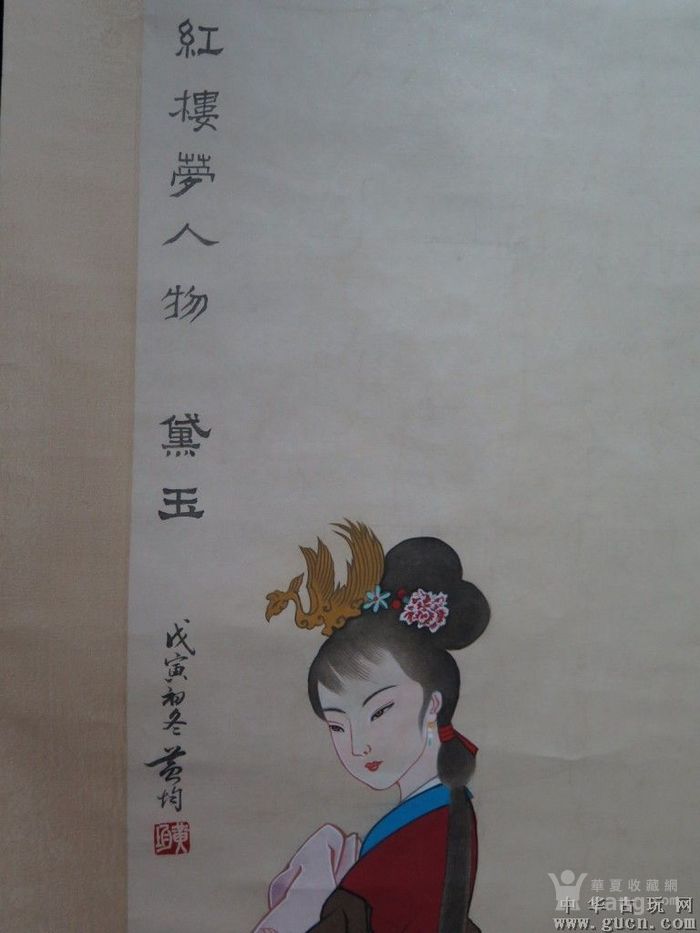 紅樓夢人物 黛玉
戊寅初冬 黃均
黃均
華夏收藏網
中华古玩网
www.gucn.com